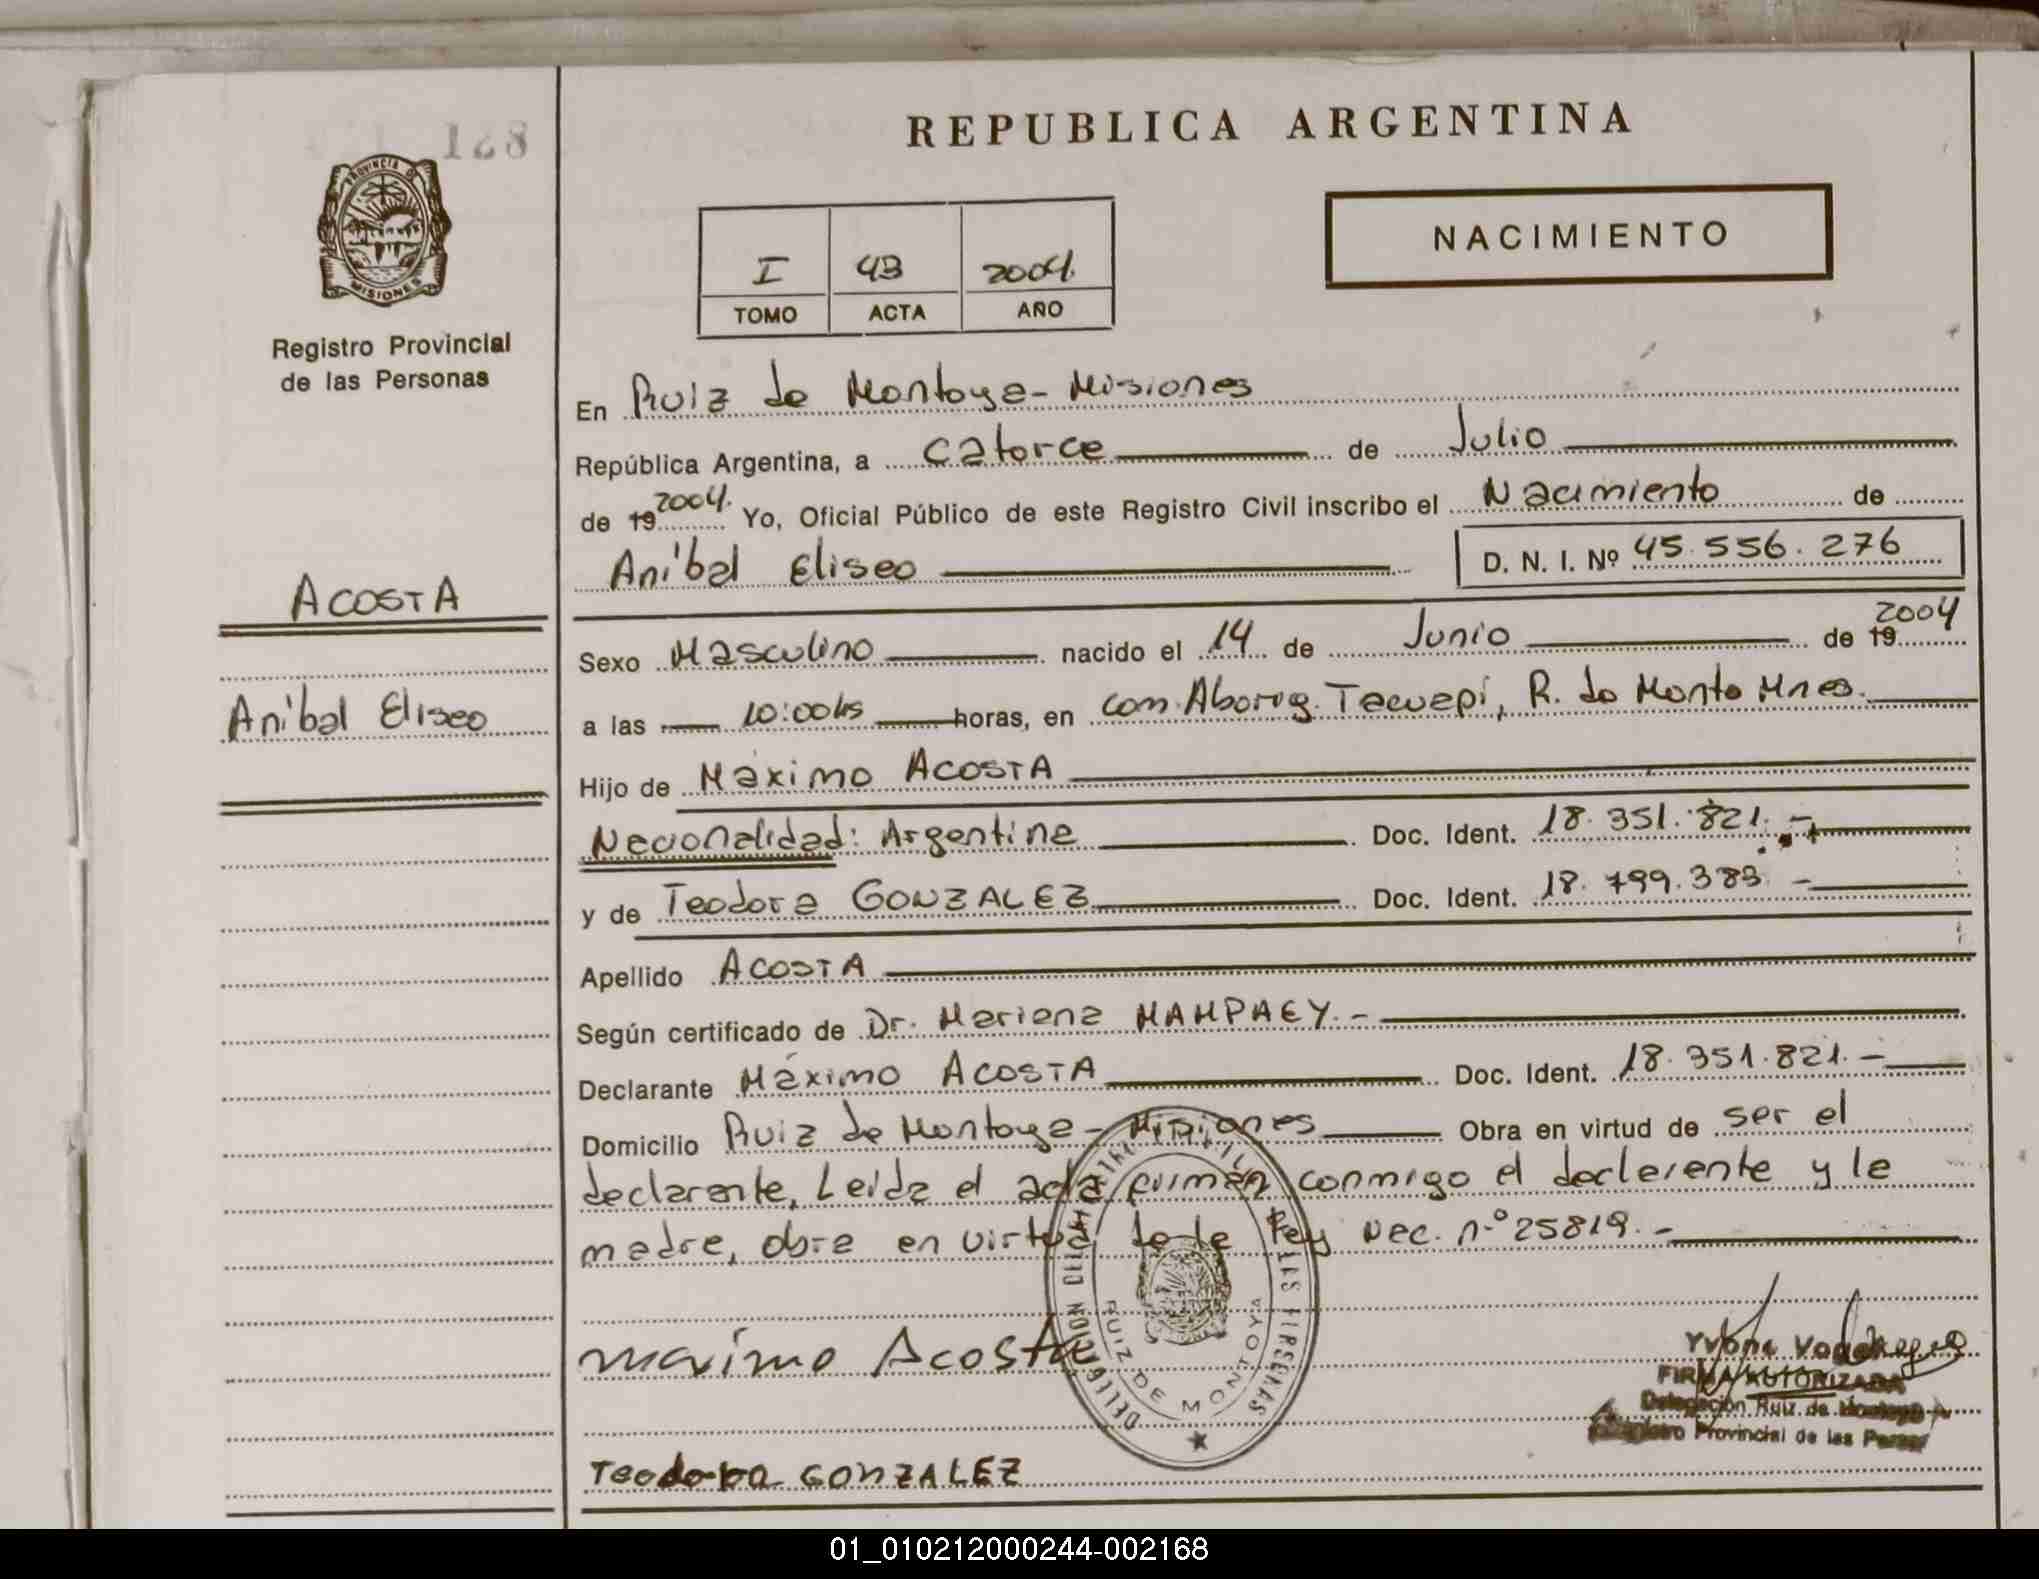 128
REPUBLICA ARGENTINA
PROVINCIA DE
MISIONES
NACIMIENTO
I 43 2004
TOMO ACTA AÑO
Registro Provincial
de las Personas
En Ruiz de Montoya - Misiones
República Argentina, a catorce de Julio
de 19 2004. Yo, Oficial Público de este Registro Civil inscribo el Nacimiento de
Aníbal Eliseo D. N. I. Nº 45.556.276
ACOSTA
Sexo Masculino nacido el 14 de Junio de 19 2004
Aníbal Eliseo
a las 10:00hs horas, en com. Aborig. Tacuapí, R. de Monto Mnes.
Hijo de Máximo ACOSTA
Nacionalidad: Argentina Doc. Ident. 18.351.821.-
y de Teodora GONZALEZ Doc. Ident. 18.799.383.-
Apellido ACOSTA
Según certificado de Dr. Mariana MAMPAEY.-
Declarante Máximo ACOSTA Doc. Ident. 18.351.821.-
Domicilio Ruiz de Montoya - Misiones Obra en virtud de ser el
declarante, Leída el acta firman conmigo el declarante y la
madre, obra en virtud de la Ley Nac. n.º 25819.-
DE LAS PERSONAS
RUIZ DE MONTOYA
maximo Acosta
Yvone
FIRMA AUTORIZADA
Delegación Ruiz de Montoya
Registro Provincial de las Person
Teodora GONZALEZ
01_010212000244-002168